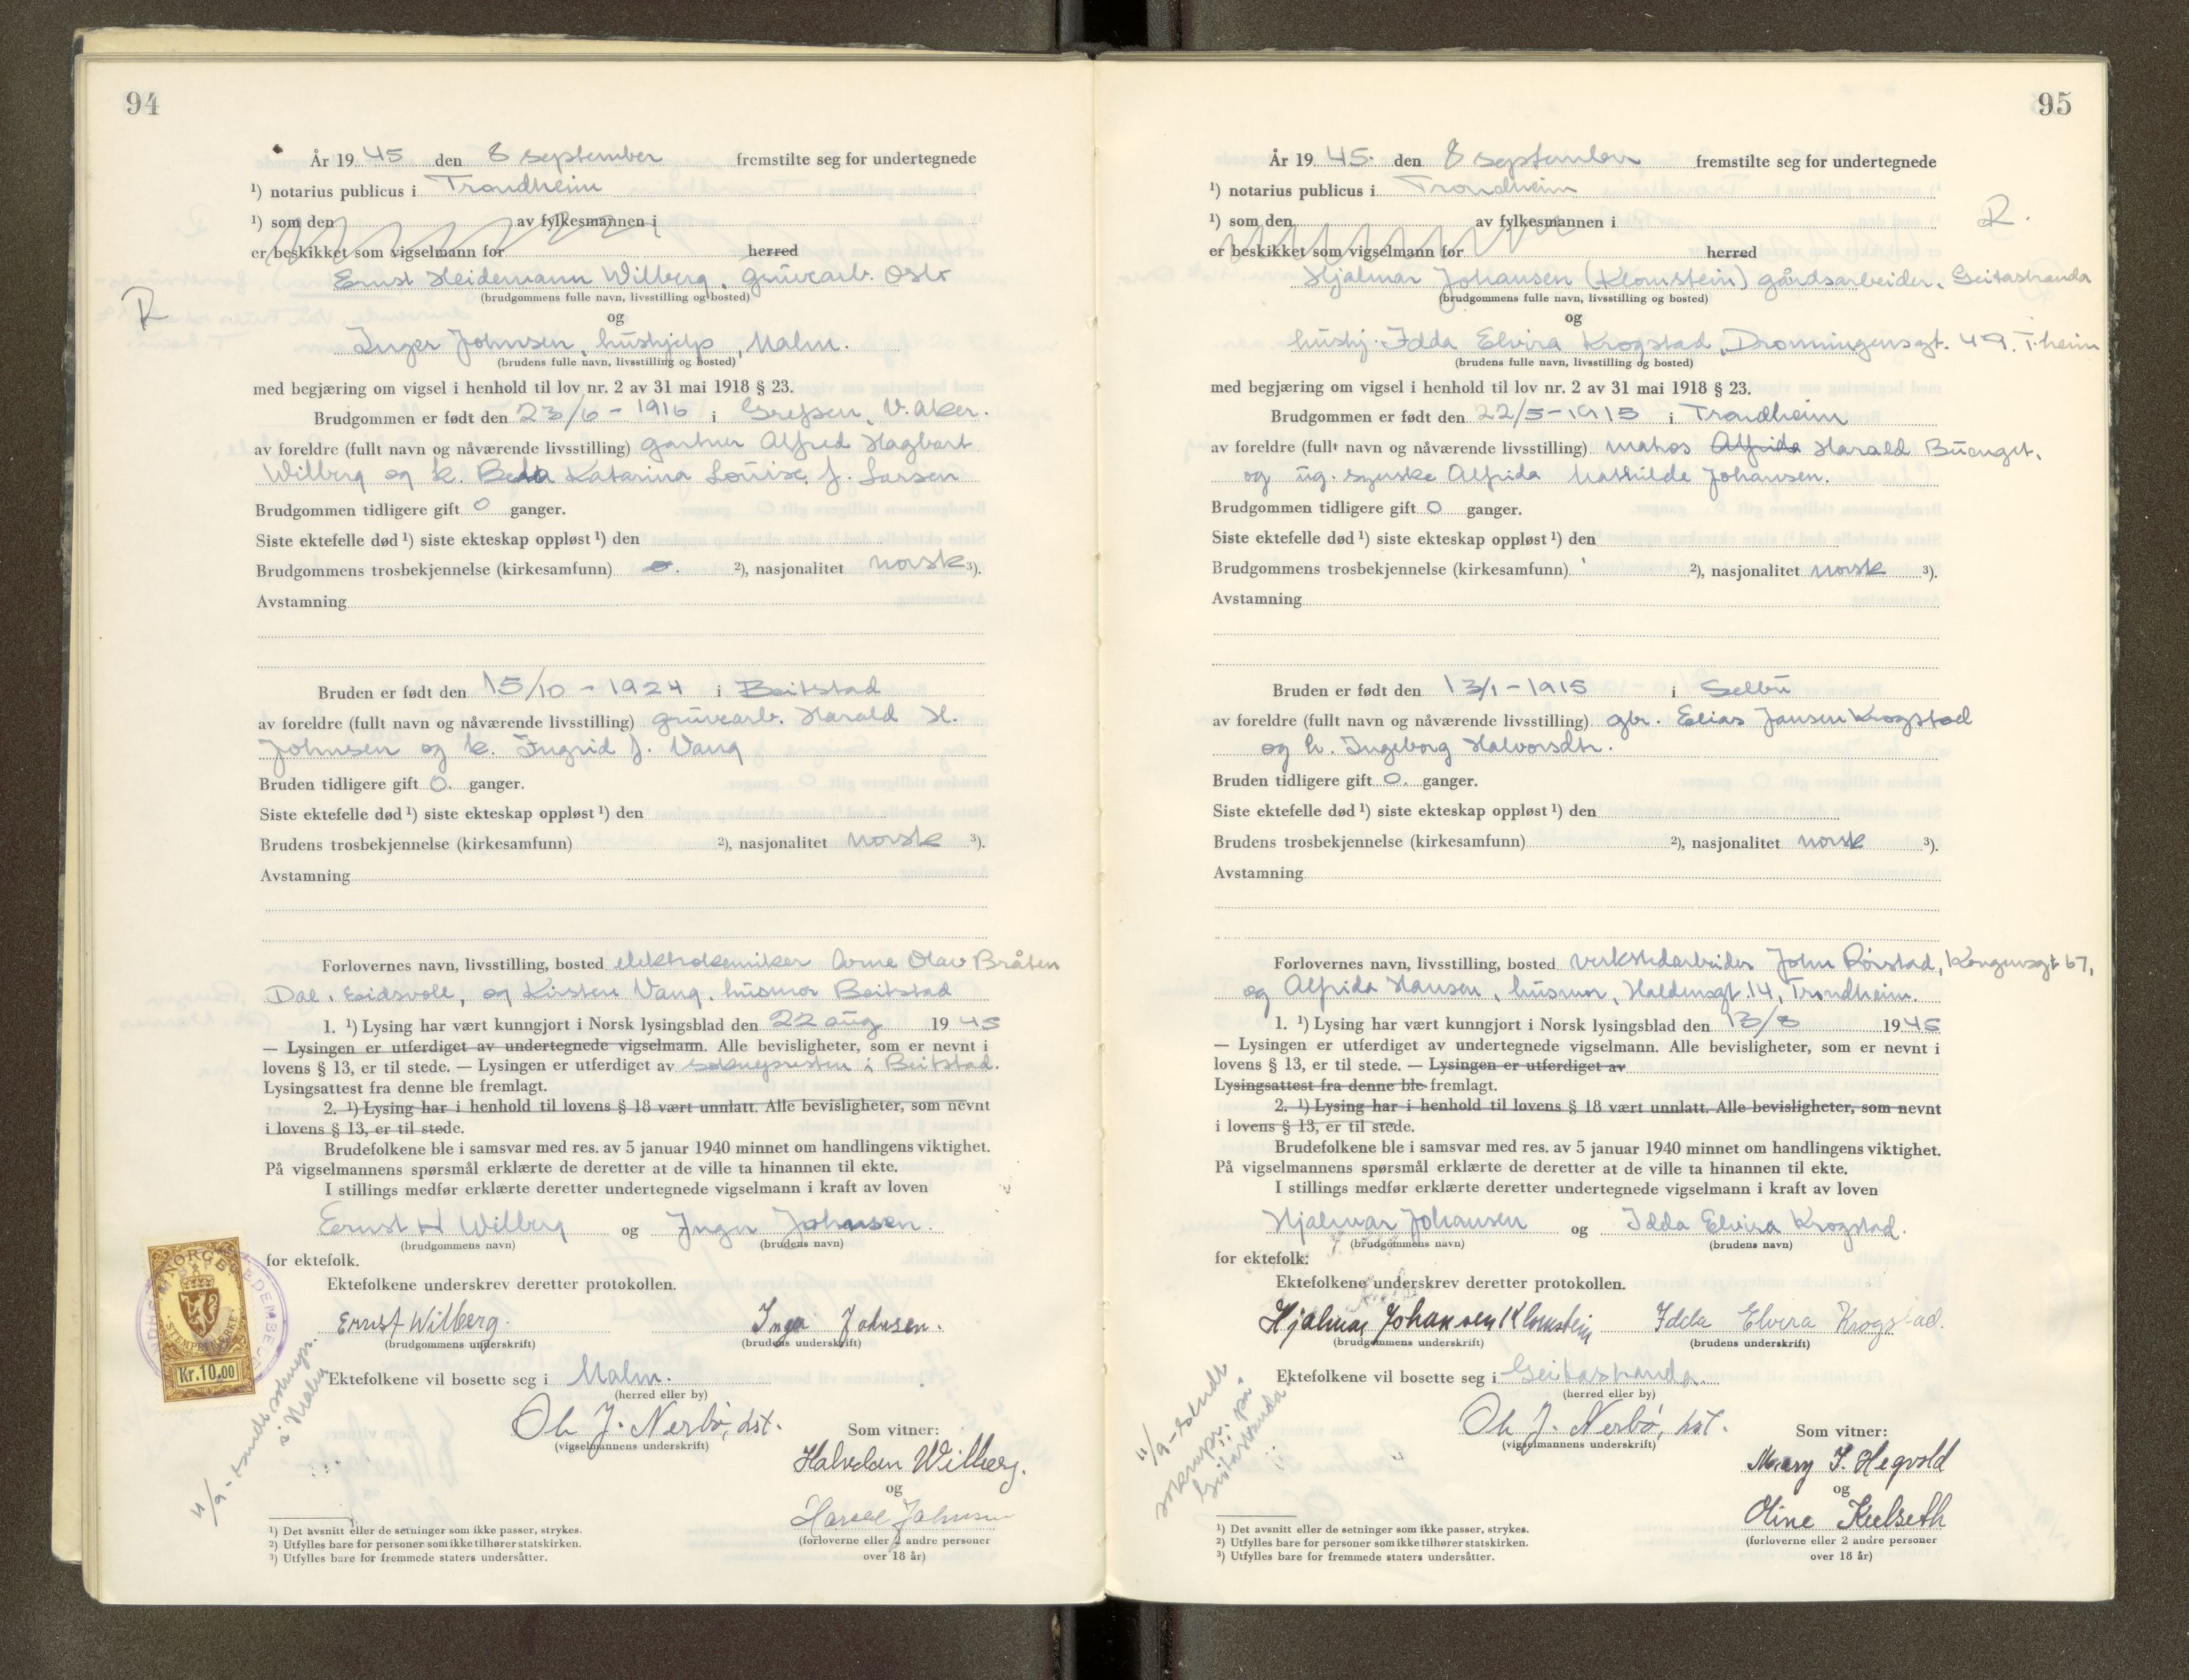 94
År 19 45 den 8 september fremstilte seg for undertegnede
¹) notarius publicus i Trondheim
¹) som den av fylkesmannen i
er beskikket som vigselmann for herred
Ernst Heidemann Wilberg, gruvearb. Oslo
(brudgommens fulle navn, livsstilling og bosted)
R
og
Inger Johnsen, hushjelp, Malm.
(brudens fulle navn, livsstilling og bosted)
med begjæring om vigsel i henhold til lov nr. 2 av 31 mai 1918 § 23.
Brudgommen er født den 23/6 - 1916 i Grefsen, V. Aker.
av foreldre (fullt navn og nåværende livsstilling) gartner Alfred Hagbart
Wilberg og k. Beda Katarina Louise f. Larsen
Brudgommen tidligere gift 0 ganger.
Siste ektefelle død ¹) siste ekteskap oppløst ¹) den
Brudgommens trosbekjennelse (kirkesamfunn) ²), nasjonalitet norsk ³).
Avstamning
Bruden er født den 15/10 - 1924 i Beitstad
av foreldre (fullt navn og nåværende livsstilling) gruvearb. Harald H.
Johnsen og k. Ingrid f. Vang
Bruden tidligere gift 0. ganger.
Siste ektefelle død ¹) siste ekteskap oppløst ¹) den
Brudens trosbekjennelse (kirkesamfunn) ²), nasjonalitet norsk ³).
Avstamning
Forlovernes navn, livsstilling, bosted elektrokemiker Arne Olav Bråten
Dal, Eidsvoll, og Kirsten Vang, husmor Beitstad
1. ¹) Lysing har vært kunngjort i Norsk lysingsblad den 22 aug 19 45
— Lysingen er utferdiget av undertegnede vigselmann. Alle bevisligheter, som er nevnt i
lovens § 13, er til stede. — Lysingen er utferdiget av soknepresten i Beitstad.
Lysingsattest fra denne ble fremlagt.
2. ¹) Lysing har i henhold til lovens § 18 vært unnlatt. Alle bevisligheter, som nevnt
i lovens § 13, er til stede.
Brudefolkene ble i samsvar med res. av 5 januar 1940 minnet om handlingens viktighet.
På vigselmannens spørsmål erklærte de deretter at de ville ta hinannen til ekte.
I stillings medfør erklærte deretter undertegnede vigselmann i kraft av loven
Ernst H Wilberg og Inger Johnsen.
(brudgommens navn) (brudens navn)
for ektefolk.
Ektefolkene underskrev deretter protokollen.
NORGE
STEMPELMERKE
Kr. 10.00
Ernst Wilberg. Inger Johnsen.
(brudgommens underskrift) (brudens underskrift)
Ektefolkene vil bosette seg i Malm.
(herred eller by)
11/9 - sendt soknepr.
i Malm
Ole J. Nerbö, dst.
(vigselmannens underskrift)
Som vitner:
Halvdan Wilberg.
og
Harald Johnsen
(forloverne eller 2 andre personer
over 18 år)
¹) Det avsnitt eller de setninger som ikke passer, strykes.
²) Utfylles bare for personer som ikke tilhører statskirken.
³) Utfylles bare for fremmede staters undersåtter.
95
År 19 45. den 8 september fremstilte seg for undertegnede
¹) notarius publicus i Trondheim
R.
¹) som den av fylkesmannen i
er beskikket som vigselmann for herred
Hjalmar Johansen (Klomstein) gårdsarbeider, Geitastranda
(brudgommens fulle navn, livsstilling og bosted)
og
hushj. Idda Elvira Krogstad, Dronningensgt. 49. T.heim
(brudens fulle navn, livsstilling og bosted)
med begjæring om vigsel i henhold til lov nr. 2 av 31 mai 1918 § 23.
Brudgommen er født den 22/5 - 1915 i Trondheim
av foreldre (fullt navn og nåværende livsstilling) matros Alfrida Harald
og ug. syerske Alfrida Mathilde Johansen.
Brudgommen tidligere gift 0 ganger.
Siste ektefelle død ¹) siste ekteskap oppløst ¹) den
Brudgommens trosbekjennelse (kirkesamfunn) ²), nasjonalitet norsk ³).
Avstamning
Bruden er født den 13/1 - 1915 i Selbu
av foreldre (fullt navn og nåværende livsstilling) gbr. Elias Jansen Krogstad
og h. Ingeborg Halvorsdtr.
Bruden tidligere gift 0. ganger.
Siste ektefelle død ¹) siste ekteskap oppløst ¹) den
Brudens trosbekjennelse (kirkesamfunn) ²), nasjonalitet norsk ³).
Avstamning
Forlovernes navn, livsstilling, bosted verkstedarbeider John Rörstad, Kongensgt 67,
og Alfrida Hansen, husmor, Haldensgt. 14, Trondheim.
1. ¹) Lysing har vært kunngjort i Norsk lysingsblad den 13/8 19 45
— Lysingen er utferdiget av undertegnede vigselmann. Alle bevisligheter, som er nevnt i
lovens § 13, er til stede. — Lysingen er utferdiget av
Lysingsattest fra denne ble fremlagt.
2. ¹) Lysing har i henhold til lovens § 18 vært unnlatt. Alle bevisligheter, som nevnt
i lovens § 13, er til stede.
Brudefolkene ble i samsvar med res. av 5 januar 1940 minnet om handlingens viktighet.
På vigselmannens spørsmål erklærte de deretter at de ville ta hinannen til ekte.
I stillings medfør erklærte deretter undertegnede vigselmann i kraft av loven
Hjalmar Johansen og Idda Elvira Krogstad.
(brudgommens navn) (brudens navn)
for ektefolk.
Ektefolkene underskrev deretter protokollen.
Hjalmar Johansen Klomstein Idda Elvira Krogstad.
(brudgommens underskrift) (brudens underskrift)
Ektefolkene vil bosette seg i Geitastranda.
(herred eller by)
11/9 - sendt
soknepr. på
Geitastranda
Ole J. Nerbö, dst.
(vigselmannens underskrift)
Som vitner:
Mary J. Hegvold
og
Oline Kulseth
(forloverne eller 2 andre personer
over 18 år)
¹) Det avsnitt eller de setninger som ikke passer, strykes.
²) Utfylles bare for personer som ikke tilhører statskirken.
³) Utfylles bare for fremmede staters undersåtter.